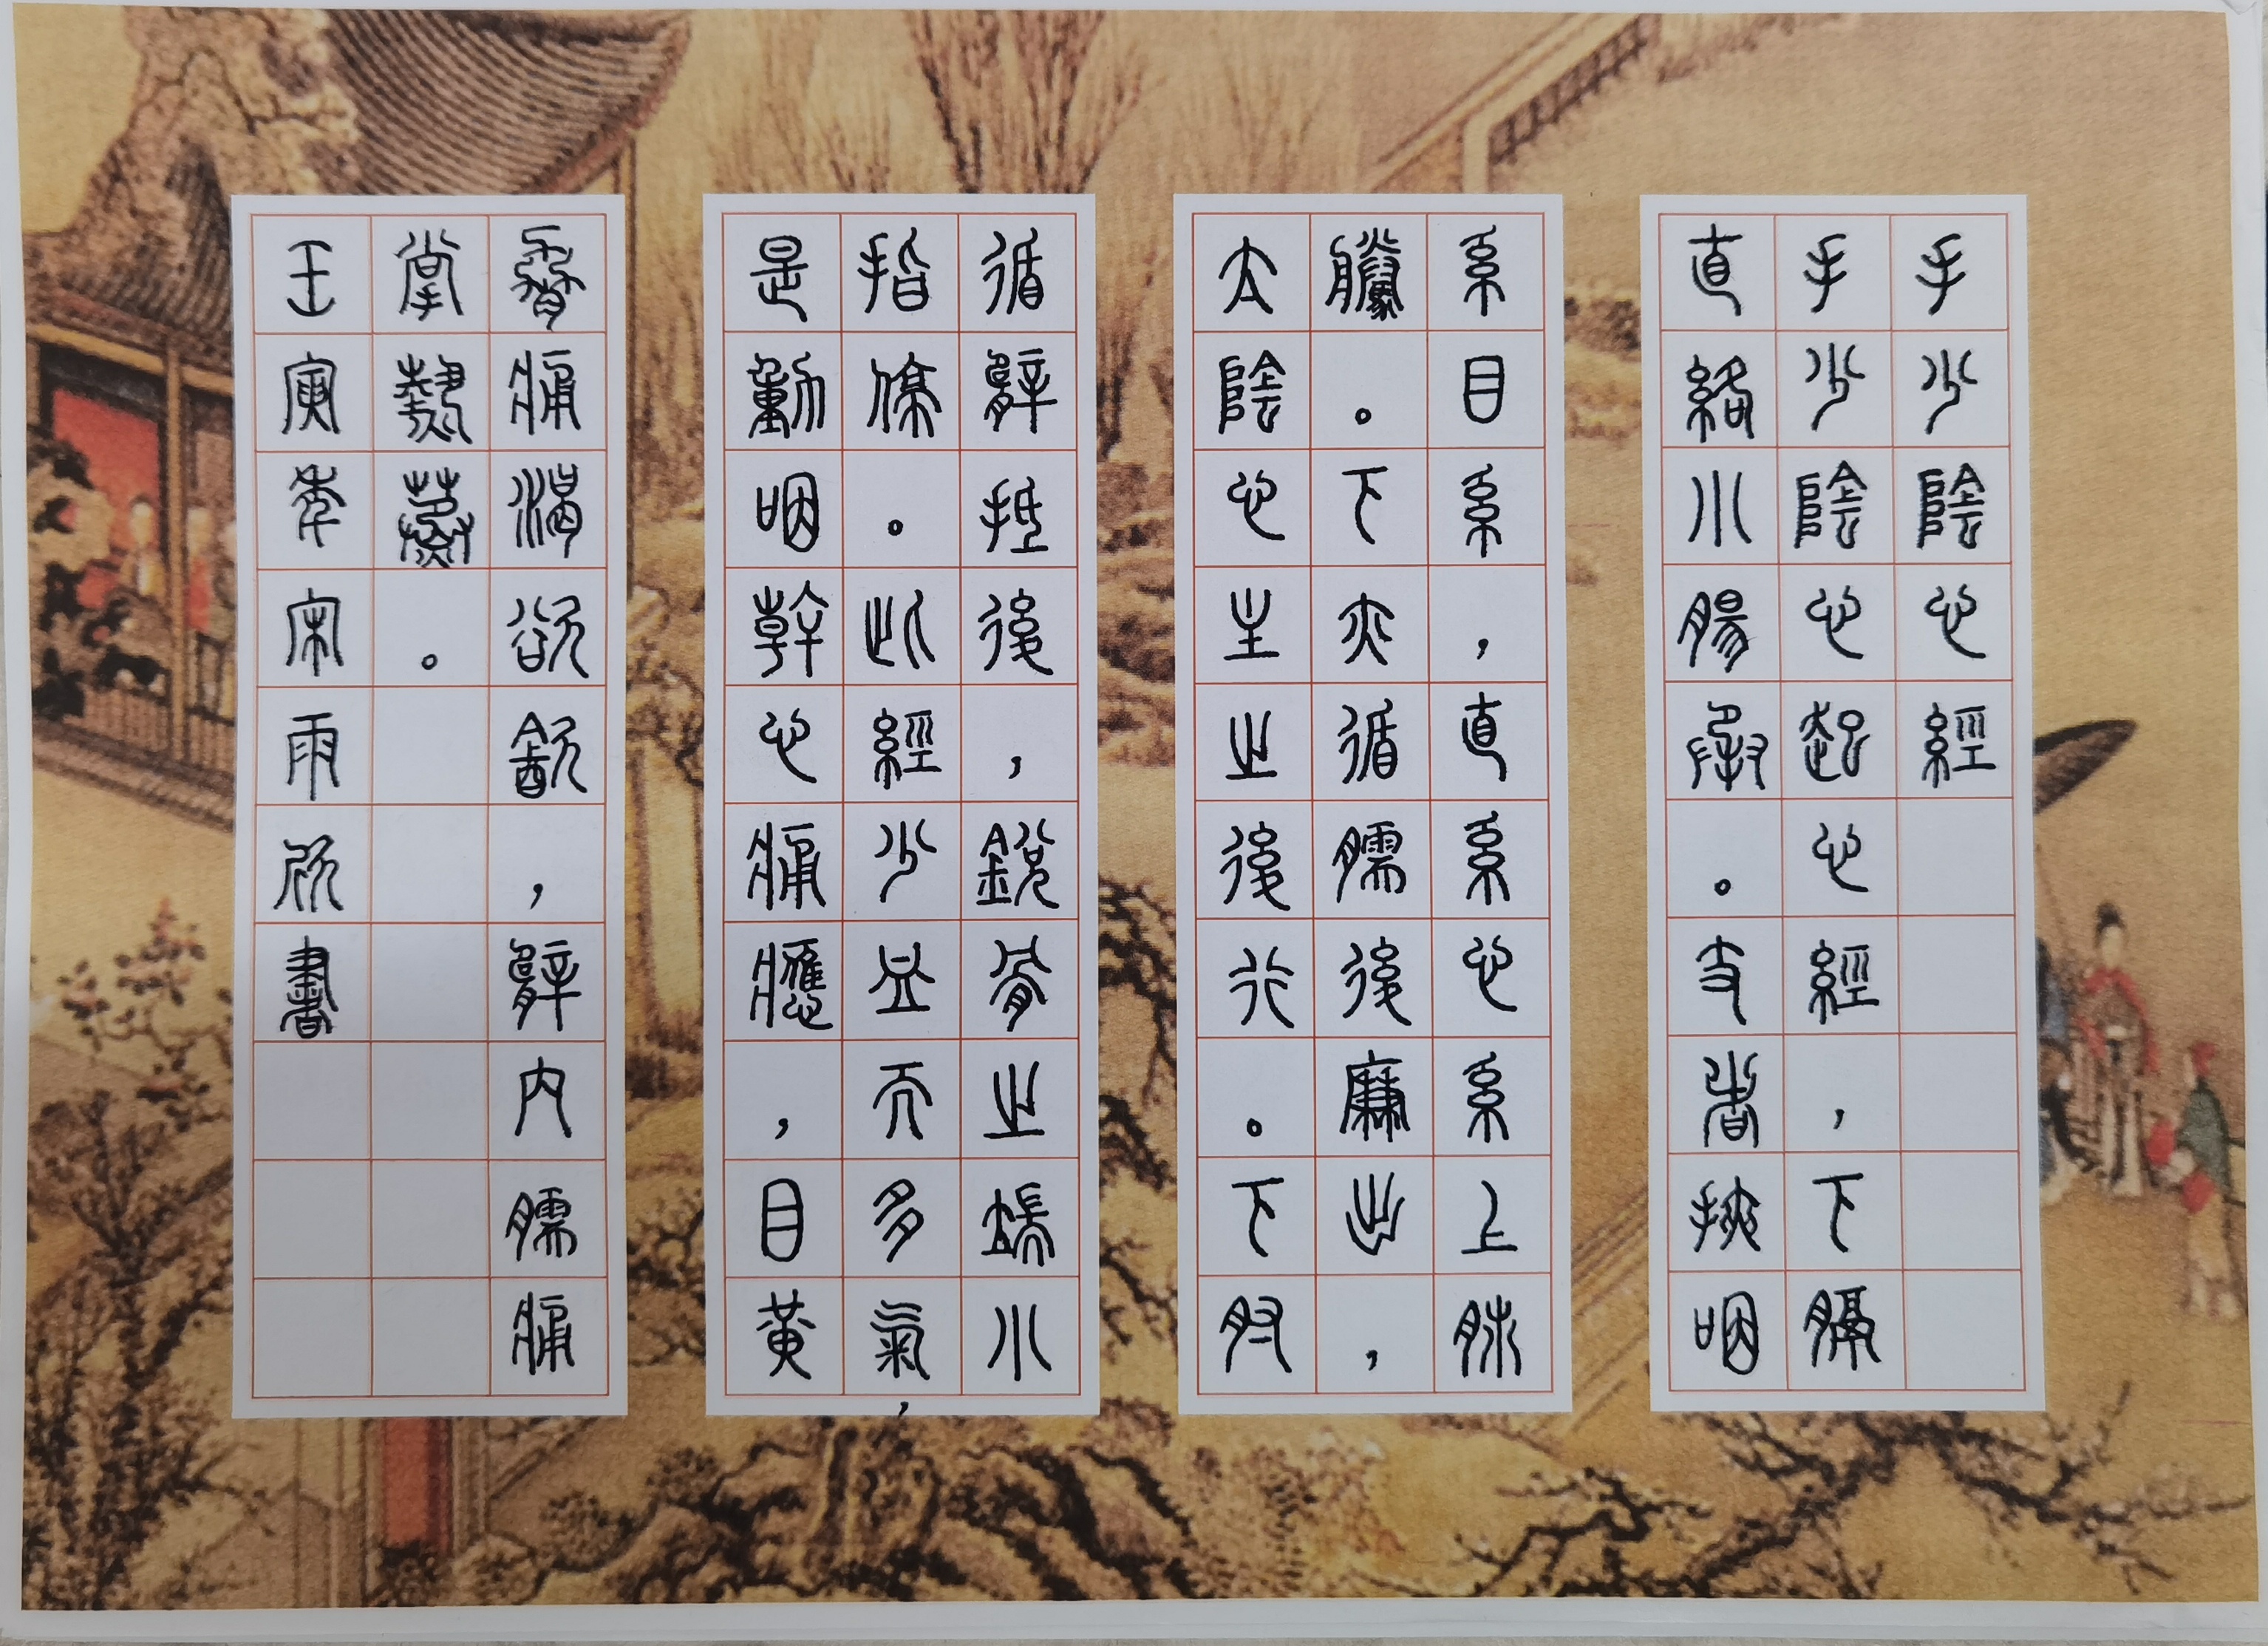 手少陰心經
手少陰心起心經，下膈
直絡小腸承。支者挾咽
系目系，直系心系上肺
騰。下亦循臑後廉出，
太陰心主之後行。下肘
循臂抵後，銳骨之端小
指條。此經少血而多氣，
是動咽幹心痛應，目黃
脅痛渴欲飲，臂內臑痛
掌熱蒸。
壬寅年宋雨欣書